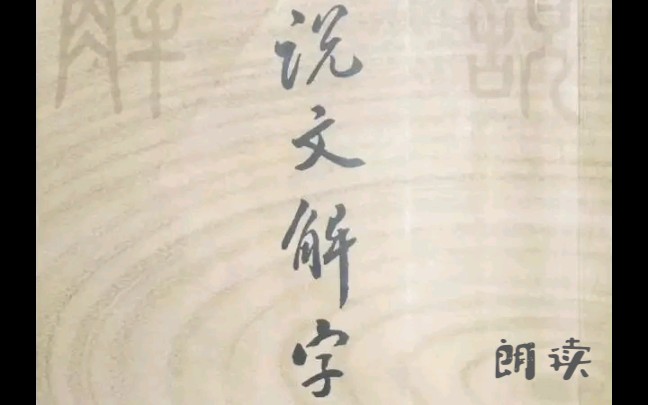 说文解字
朗读